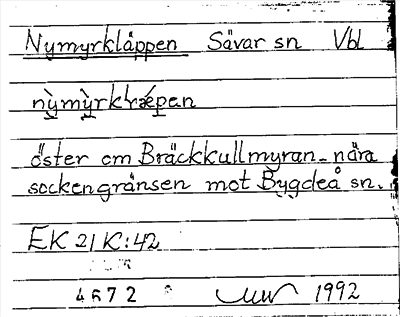 Nymyrkläppen Sävar sn Vbl
öster om Bräckkullmyran - nära
sockengränsen mot Bygdeå sn.
EK 21K:42
4672 1992